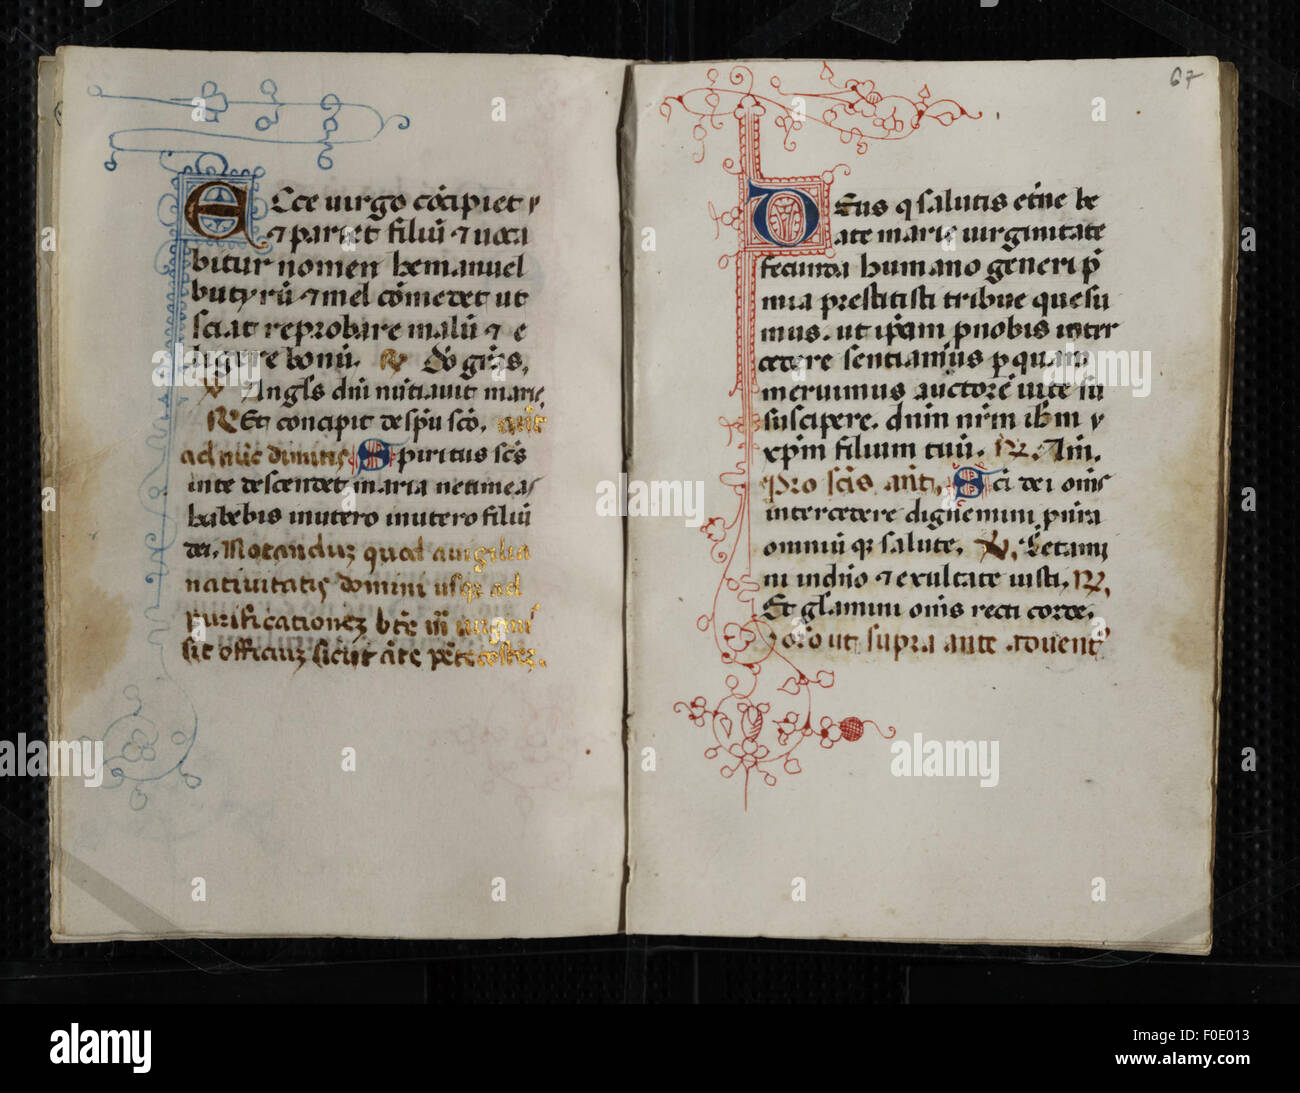 Ecce uirgo cōcipiet ⁊
⁊ pariet filiū ⁊ uoca
bitur nomen hemanuel
butyrū ⁊ mel cōmedet ut
sciat reprobare malū ⁊ e
ligere bonū. ℟ Dō grās.
℣ Angls dnī nūtiauit marie
℟ Et concipit de spū scō. ant̄
ad nūc dimittis Spiritus scs
in te descendet maria ne timeas
habebis in utero in utero filiū
dei. Notanduz quod a uigilia
natiuitatis domini usq ad
purificationez btē m̄ uirginis
sit officiuz sicut ātē pētecostez.
67
Deus q salutis etne be
ate marie uirginitate
fecunda humano generi p̄
mia prestitisti tribue quesu
mus. ut ipam p nobis inter
cedere sentiamus p quam
meruimus auctorē uite su
suscipere. dnm nrm ihm ⁊
xpm filium tuū. ℟. Am.
Pro scis ant. Sci dei omes
intercedere dignemini p nra
omniū q salute. ℣. Letami
ni in dno ⁊ exultate iusti. ℟.
Et glamini oms recti corde.
oro ut supra ante aduent
alamy
Image ID: F0E013
www.alamy.com